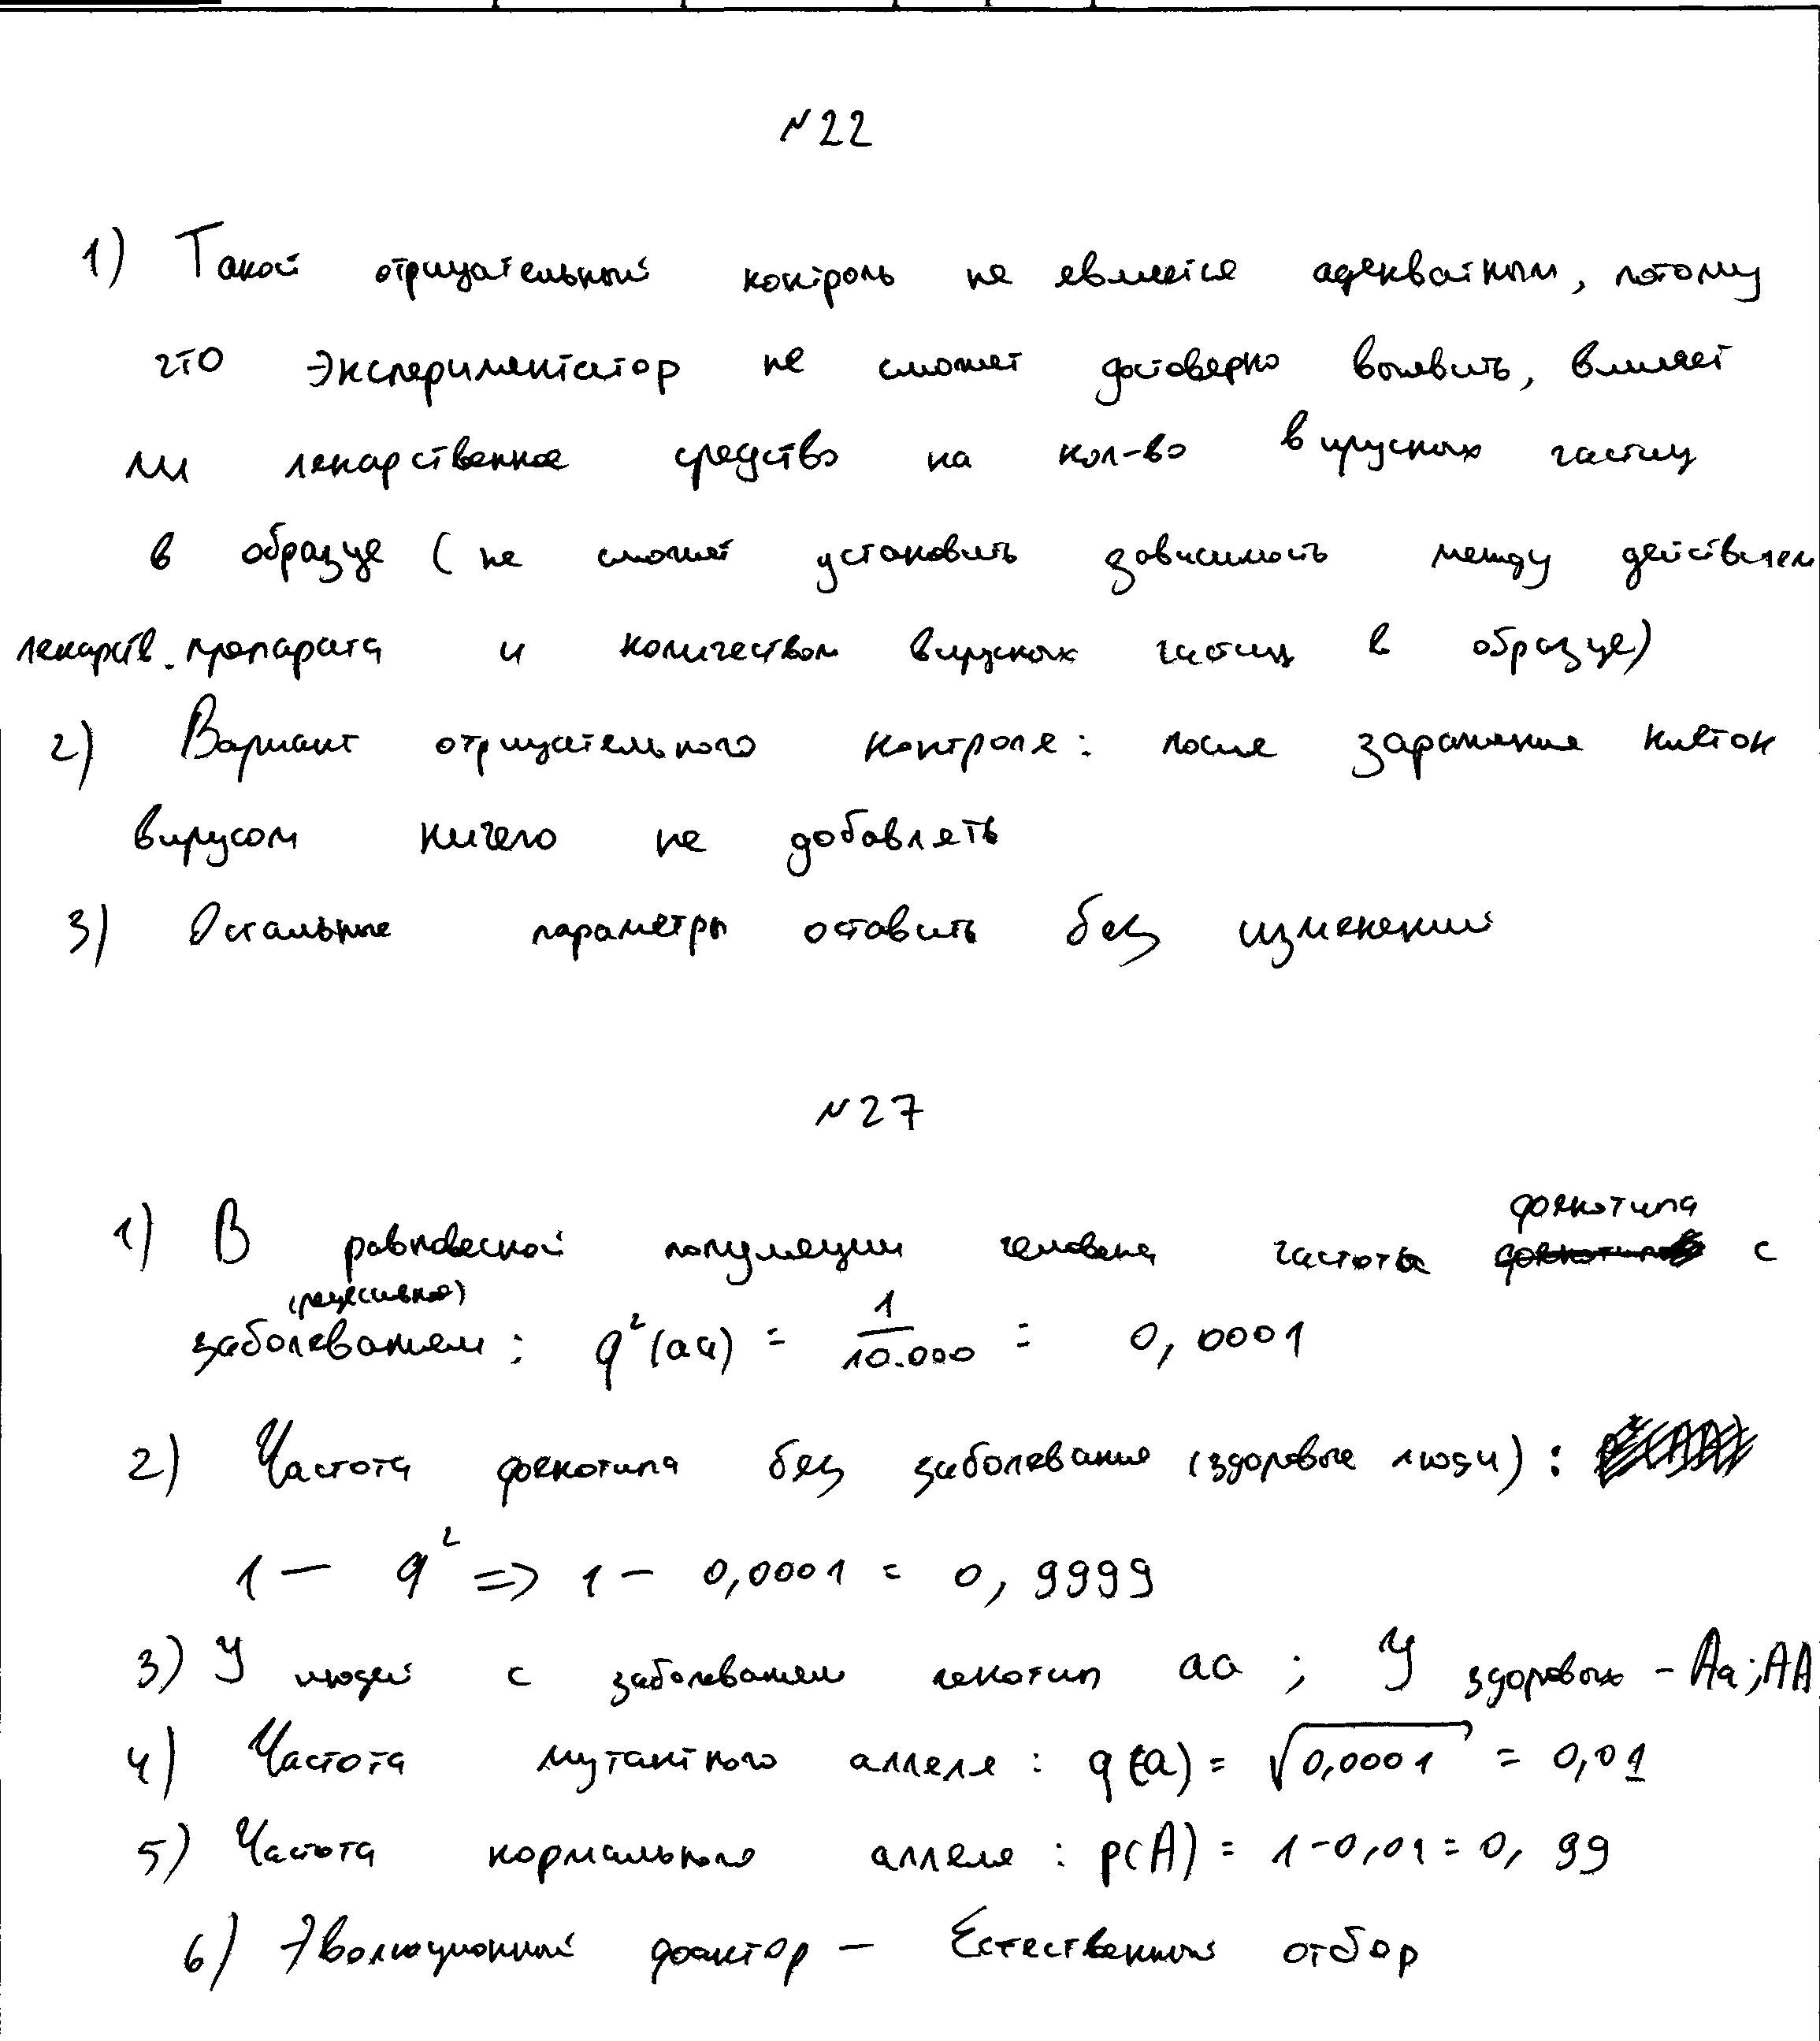 №22
1) Такой отрицательный контроль не является адекватным, потому
что экспериментатор не сможет достоверно выявить, влияет
ли лекарственное средство на кол-во вирусных частиц
в образце (не сможет установить зависимость между действием
лекарств. препарата и количеством вирусных частиц в образце)
2) Вариант отрицательного контроля: после заражения клеток
вирусом ничего не добавлять
3) Остальные параметры оставить без изменений
№27
1) В равновесной популяции человека частота фенотипа с
(рецессивное)
заболеванием: q²(aa) = 1/10.000 = 0,0001
2) Частота фенотипа без заболевания (здоровые люди):
1 – q² => 1 – 0,0001 = 0,9999
3) У людей с заболеванием генотип aa; У здоровых – Aa; AA
4) Частота мутантного аллеля: q(a) = √0,0001 = 0,01
5) Частота нормального аллеля: p(A) = 1-0,01 = 0,99
6) Эволюционный фактор – Естественный отбор